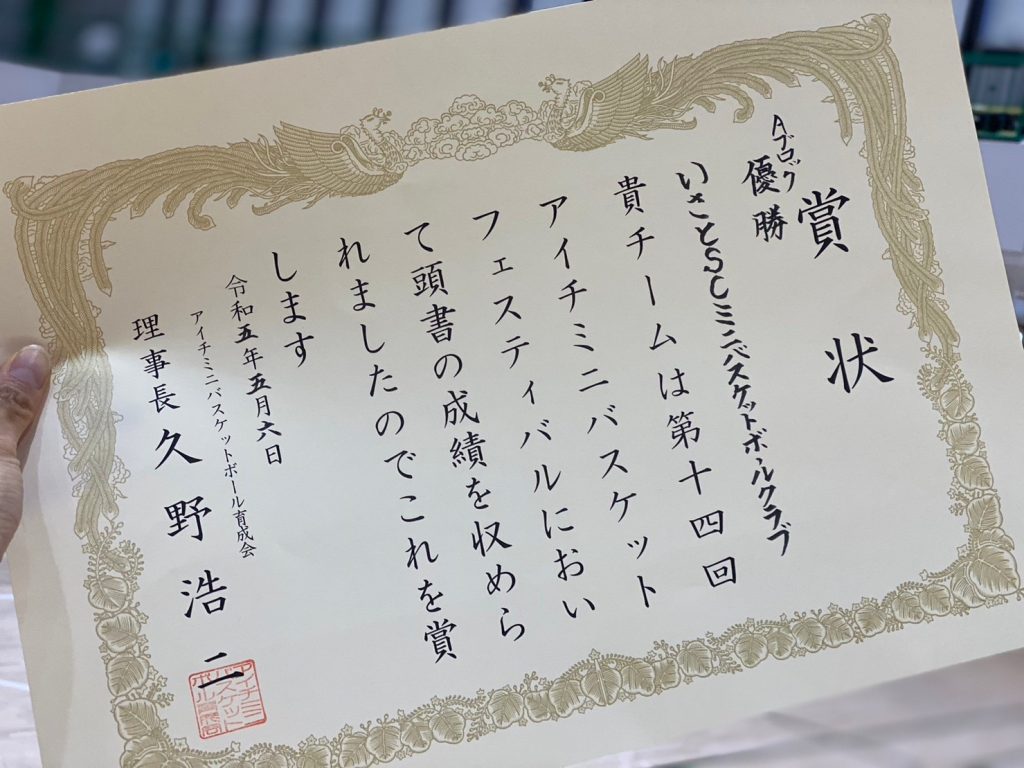 賞状
Aブロック
優勝
いさとSCミニバスケットボールクラブ
貴チームは第十四回
アイチミニバスケット
フェスティバルにおい
て頭書の成績を収めら
れましたのでこれを賞
します
令和五年五月六日
アイチミニバスケットボール育成会
理事長 久野浩二